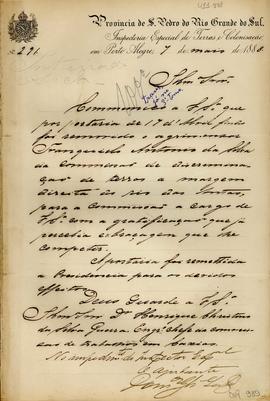 Provincia de S. Pedro do Rio Grande do Sul.
Inspectoria Especial de Terras e Colonisação
em Porto Alegre, 7 de maio de 188
Nº 221
Illmo Snr
Communico a VSª que
por portaria de 17 d'Abril findo
foi removido o agrimensor
Antonio da Silva
da Commissão de discrimina-
ção de terras a margem
direita do rio das Antas,
para a Commissão a cargo de
VSª com a gratificação que já
percebia e bagagem que lhe
competir.
A portaria foi remettida
a Presidencia para os devidos
effeitos.
Deus Guarde a VSª
Illmo Snr Dr Henrique Christino
da Silva Guerra Engº Chefe da commis-
são de trabalhos em Caxias.
No impedimto do Inspector Espal
O Ajudante
989